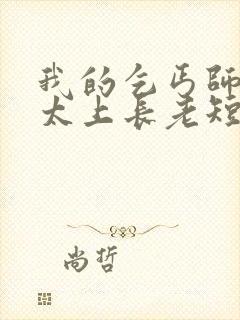 我的乞丐師
太上長老短
尚哲